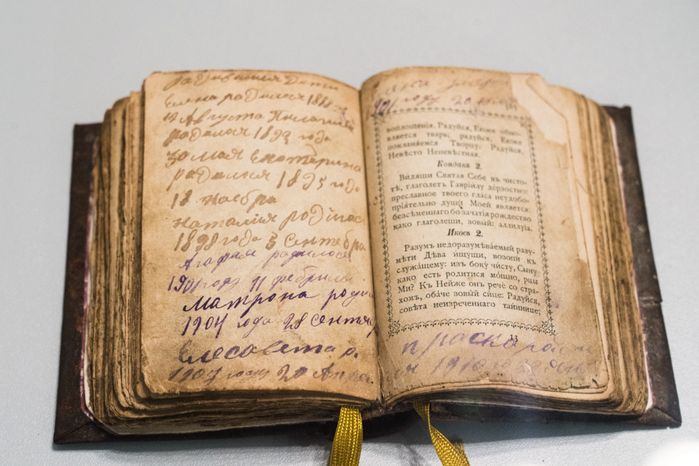 родившия дети
Елена родилася 18
12 Августа
родился 1893 года
30 мая Екатерина
родилася 1895 года
18 Ноября
Наталия родилас
1898 года 3 Сентебра
Агафия родилось
1901 году 11 феврал
Матрона роди
1904 года 28 сентя
Елесовета р
1907 году 20
году 20
воплощенія. Радуйся, Еюже обно-
вляется тварь; радуйся, Еюже
покланяемся Творцу: Радуйся,
Невѣсто Неневѣстная.
Кондакъ 2.
Видящи Святая Себе въ чисто-
тѣ, глаголетъ Гавріилу дерзостно:
преславное твоего гласа неудобо-
пріятельно души Моей является:
безсѣменнаго бо зачатія рождество
како глаголеши, зовый: аллилуіа.
Икосъ 2.
Разумъ недоразумѣваемый разу-
мѣти Дѣва ищущи, возопи къ
служащему: изъ боку чисту, Сыну
како есть родитися мощно, рцы
Ми? Къ Нейже онъ рече со стра-
хомъ, обаче зовый сице: Радуйся,
совѣта неизреченнаго таиннице;
Праско
1910